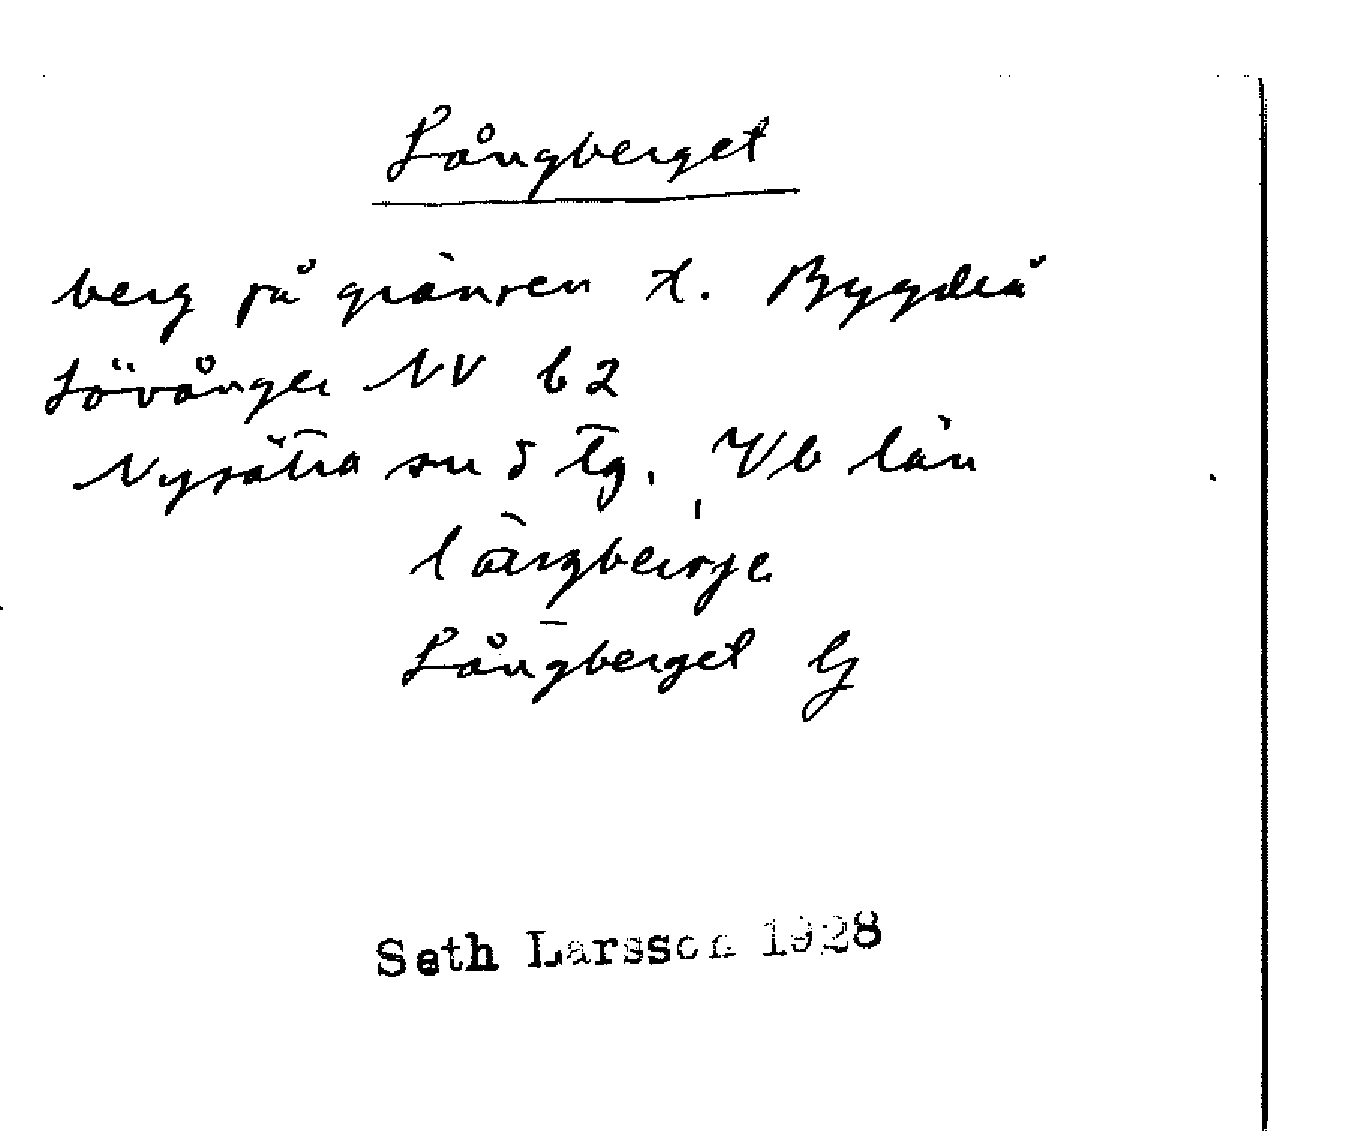 Långberget
berg på gränsen t. Bygdeå
Lövånger NV b2
Nysätra sn S tg. Vb län
Långberget G
Seth Larsson 1928